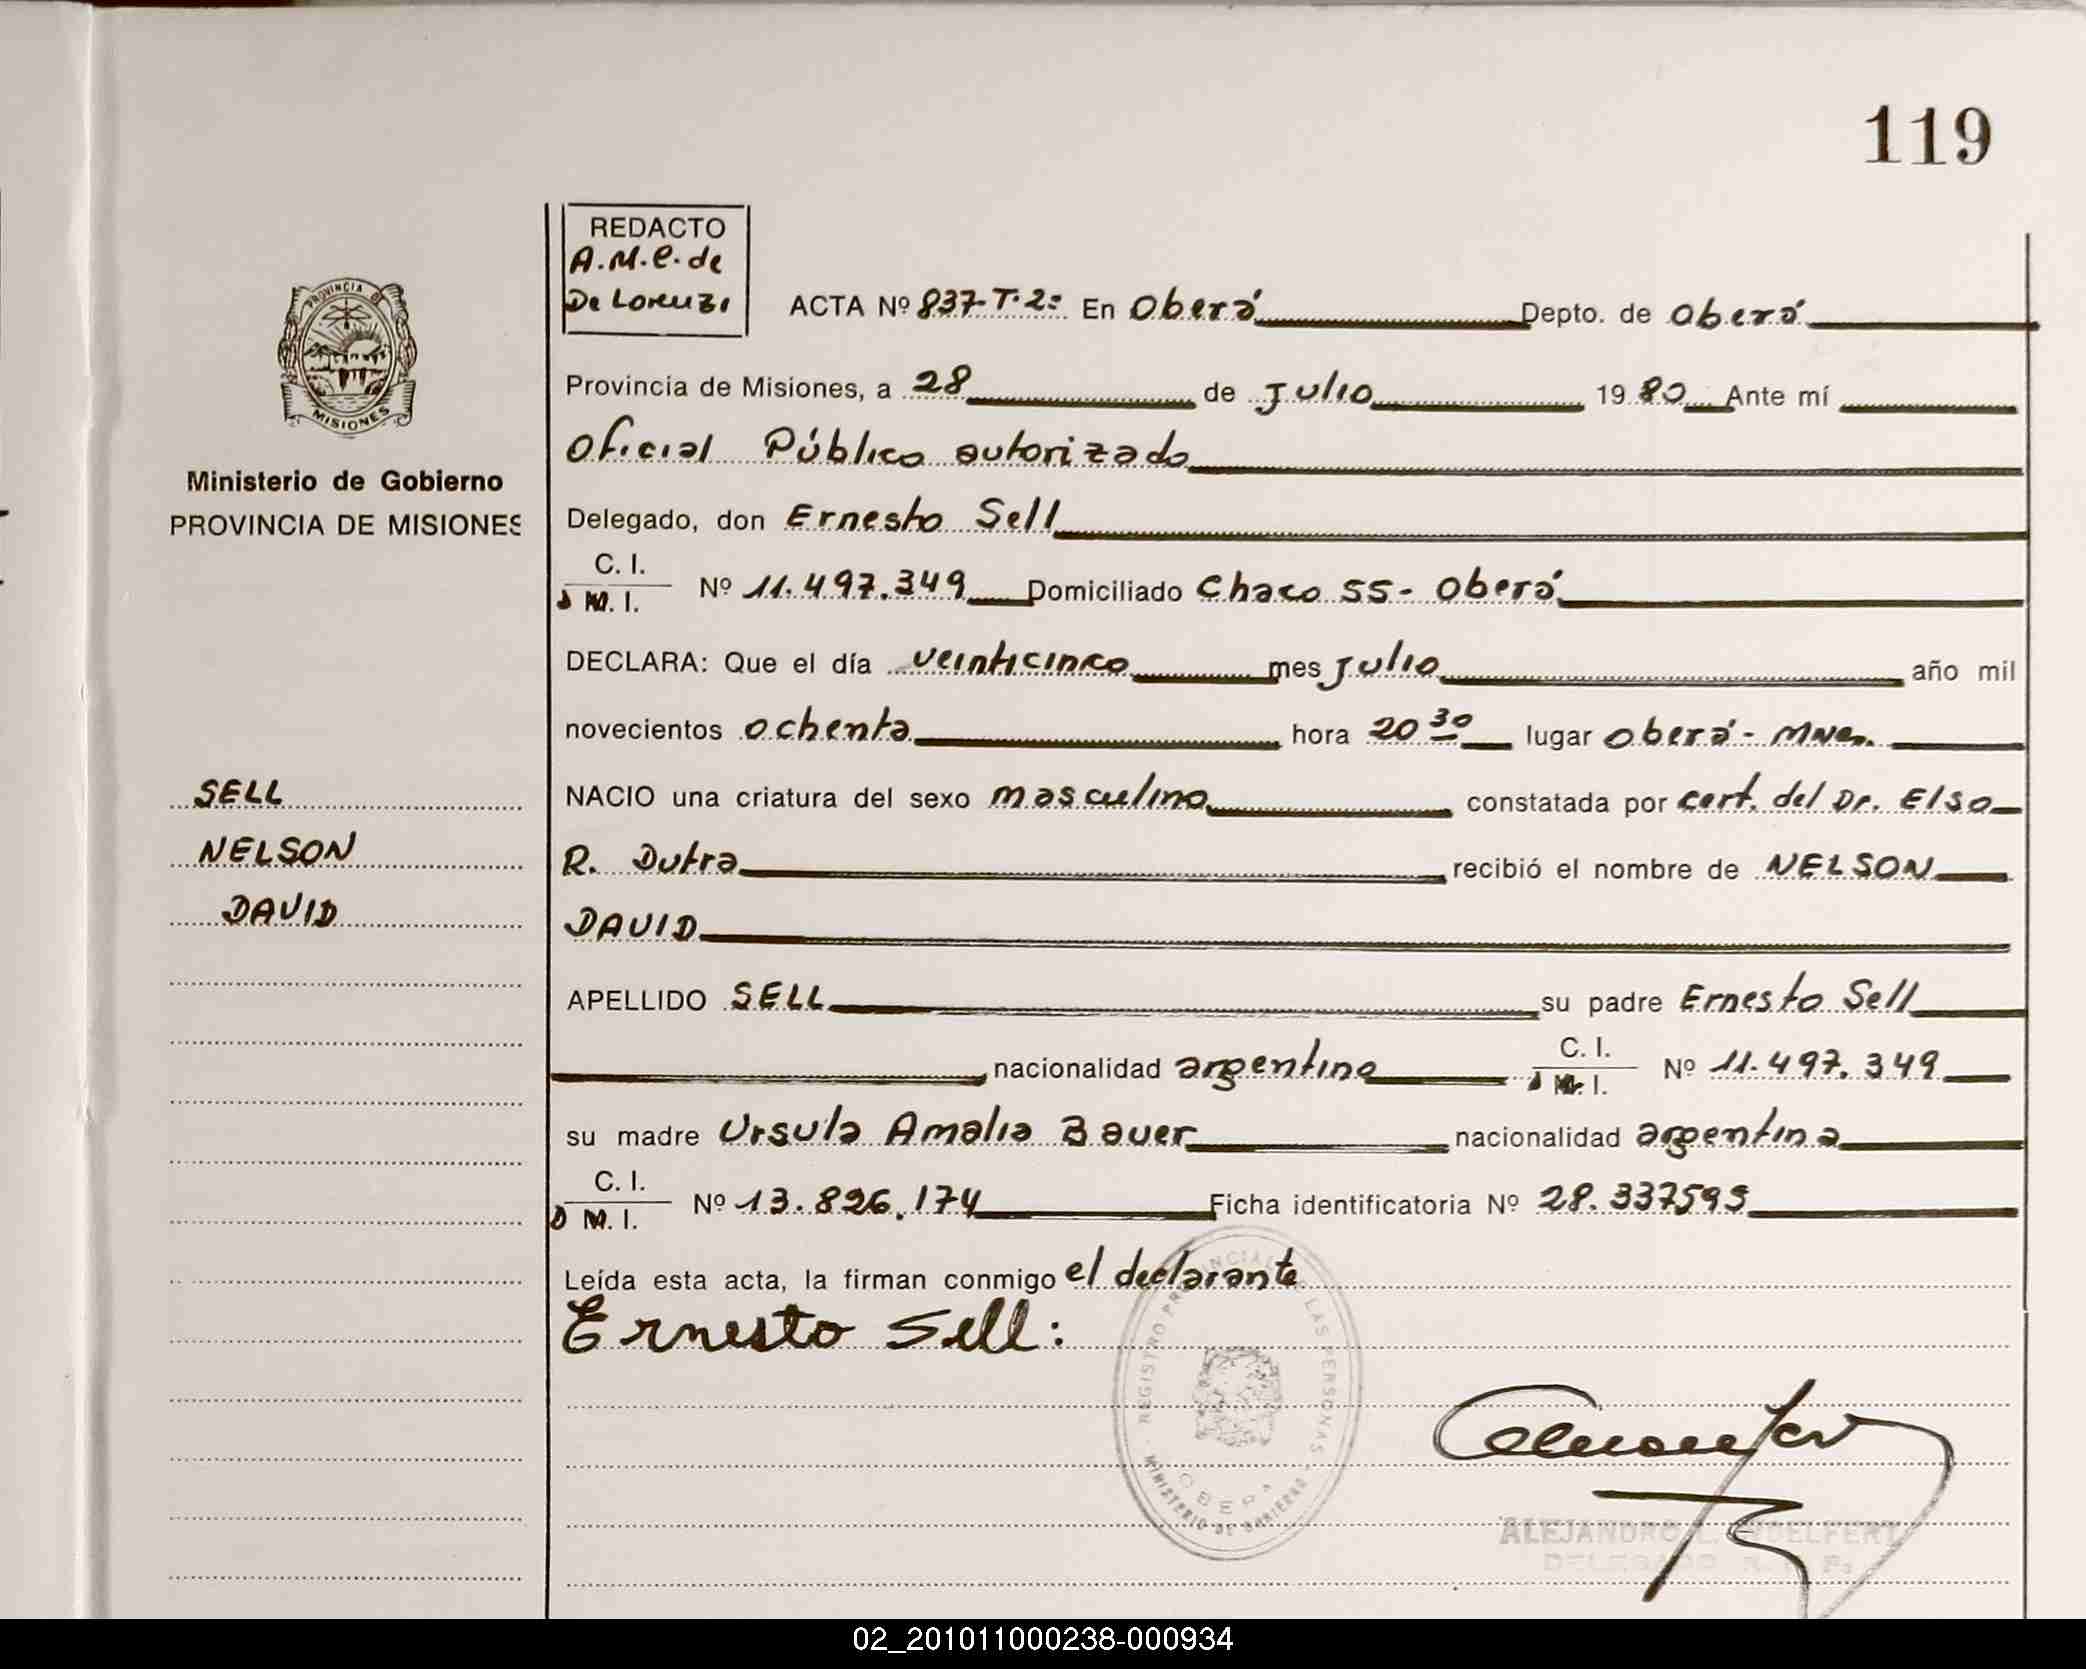 119
REDACTO
A.M.C. de
De Lorenzi
PROVINCIA DE
MISIONES
Ministerio de Gobierno
PROVINCIA DE MISIONES
ACTA Nº 837-T.2º En Oberá Depto. de Oberá
Provincia de Misiones, a 28 de Julio 1980 Ante mí
Oficial Público autorizado
Delegado, don Ernesto Sell
C. I.
D M. I. Nº 11.497.349 Domiciliado Chaco 55 - Oberá
DECLARA: Que el día veinticinco mes Julio año mil
novecientos ochenta hora 20 30 lugar Oberá - Mnes.
SELL
NELSON
DAVID
NACIO una criatura del sexo masculino constatada por cert. del Dr. Elso
R. Dutra recibió el nombre de NELSON
DAVID
APELLIDO SELL su padre Ernesto Sell
nacionalidad argentina C. I. D M. I. Nº 11.497.349
su madre Ursula Amalia Bauer nacionalidad argentina
C. I.
D M. I. Nº 13.826.174 Ficha identificatoria Nº 28.337595
Leída esta acta, la firman conmigo el declarante
Ernesto Sell:
REGISTRO PROVINCIAL DE LAS PERSONAS
MINISTERIO DE GOBIERNO
OBERA
ALEJANDRO L.
DELEGADO R. P. P.
02_201011000238-000934